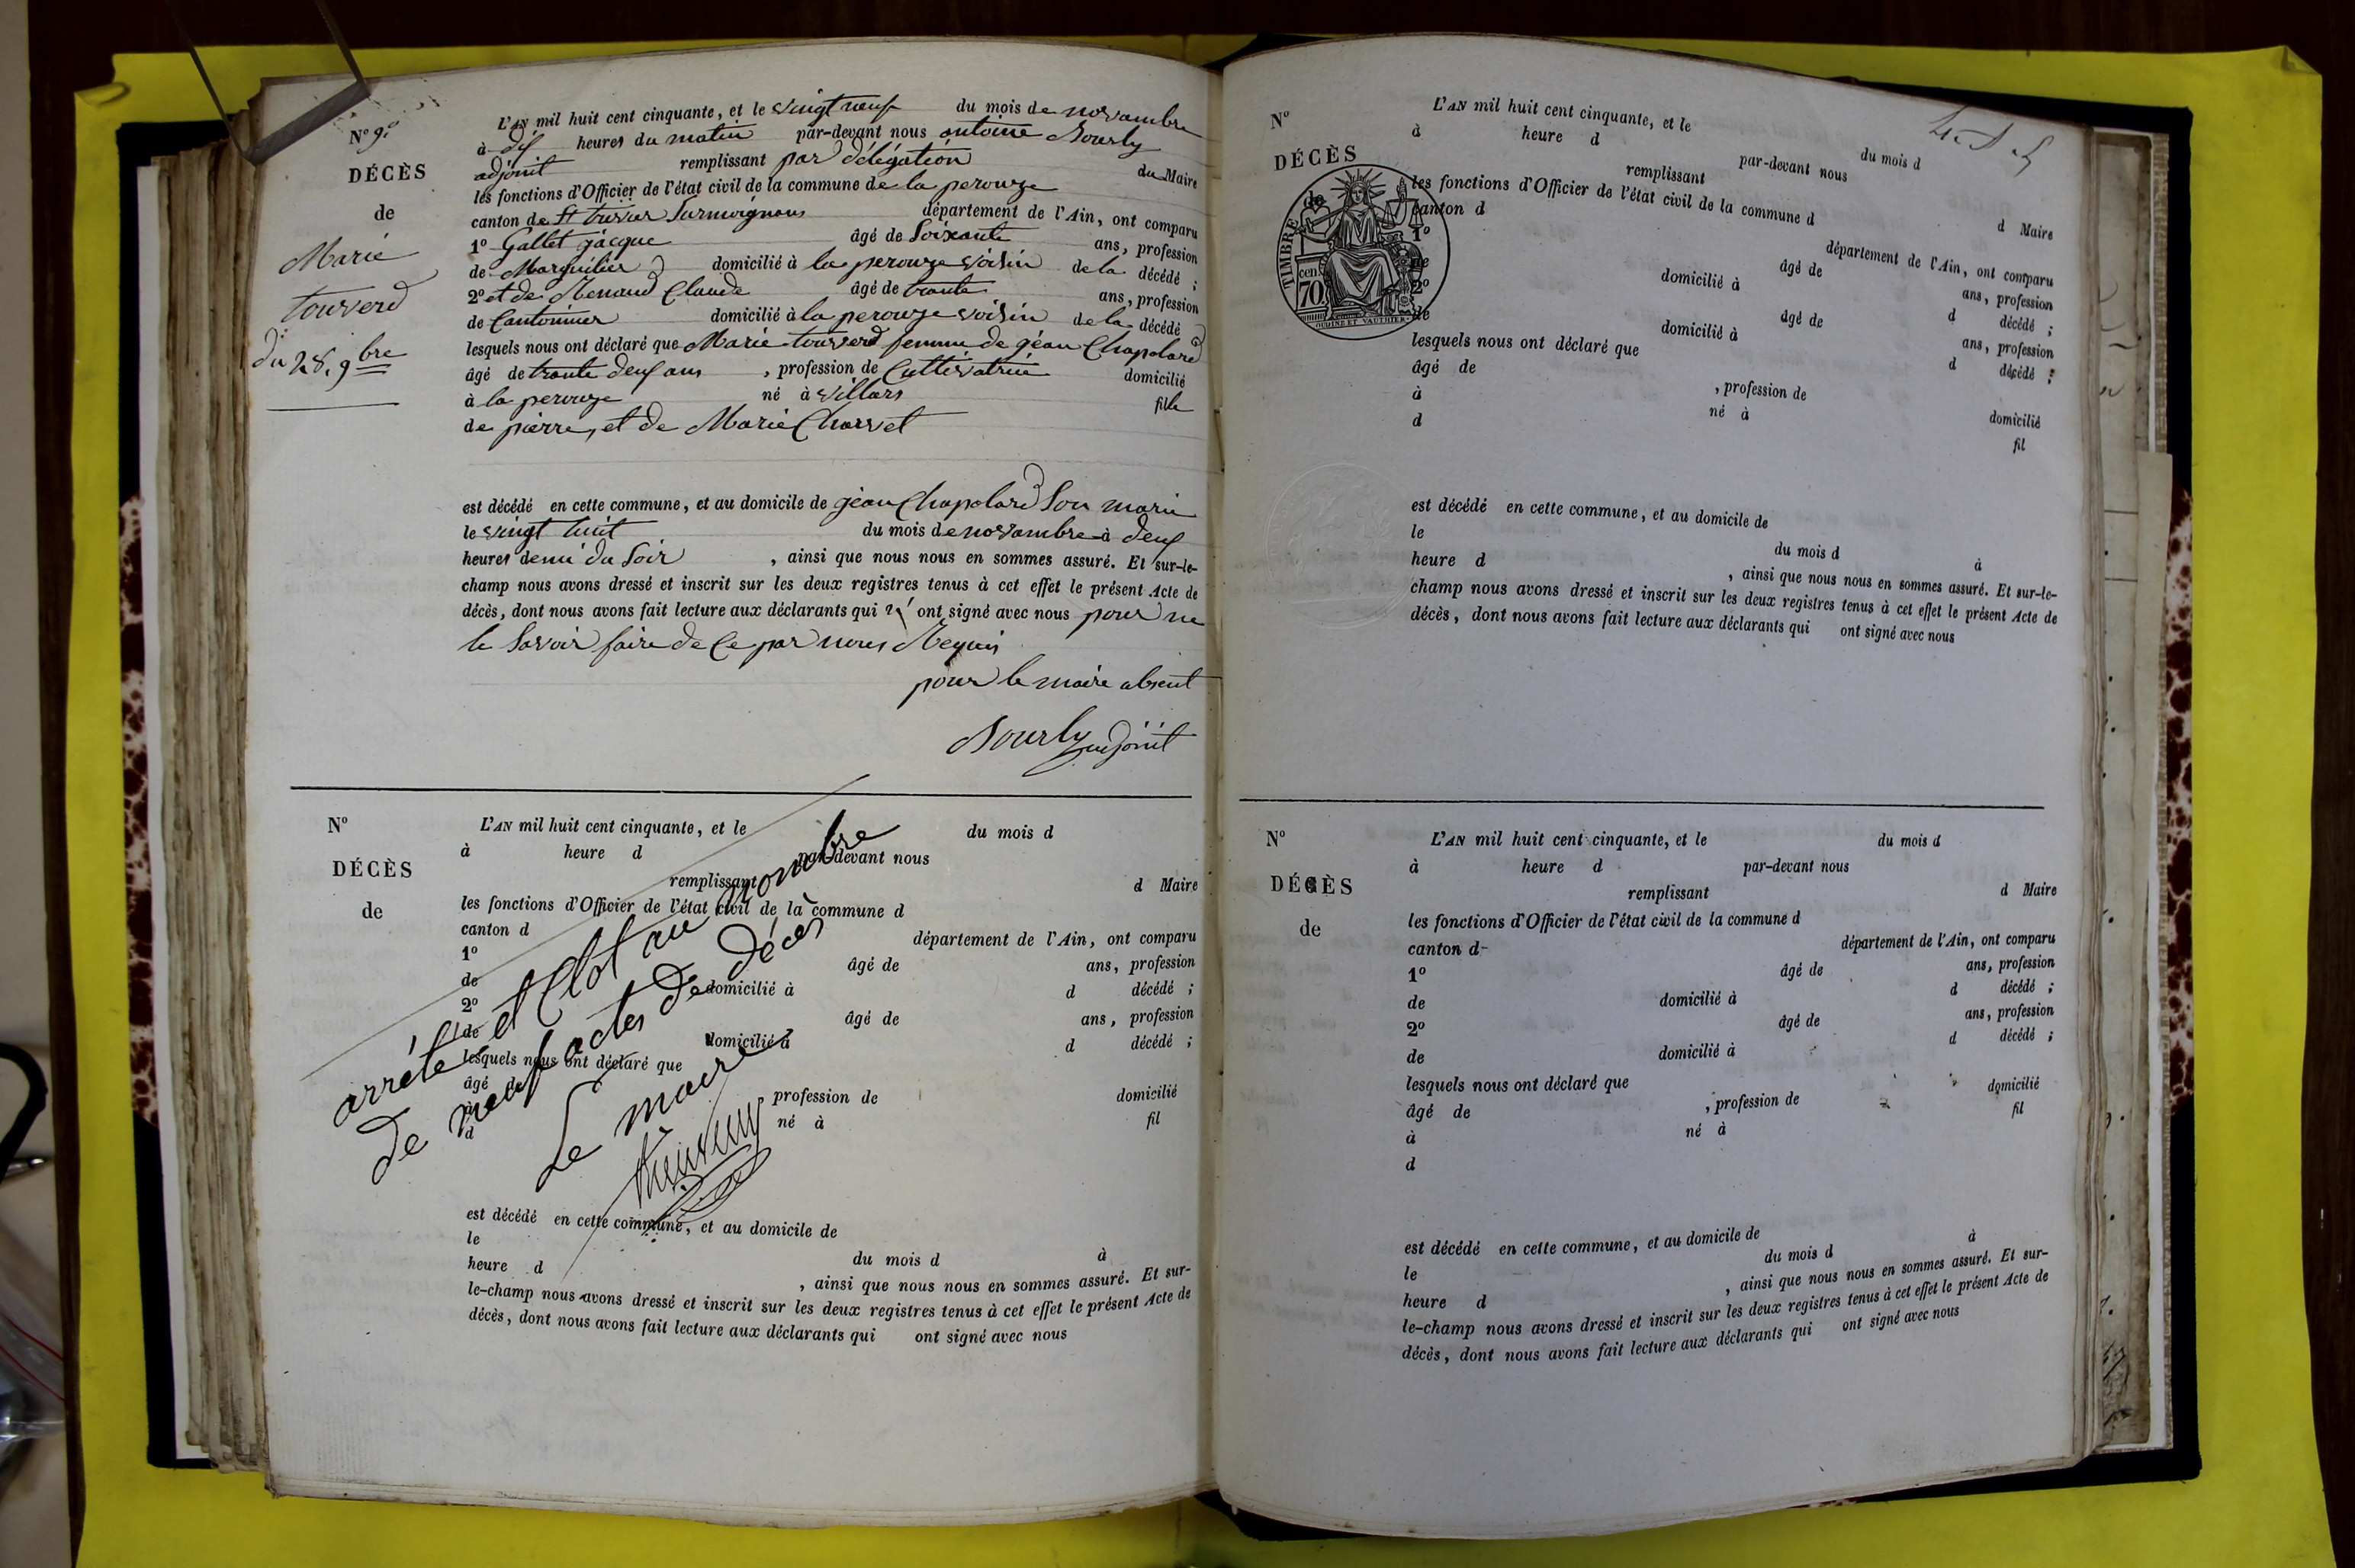 N° 9.
DÉCÈS
de
Marie
touverd
du 28. 9bre
L'AN mil huit cent cinquante, et le vingt neuf du mois de novambre
à dix heures du matin par-devant nous antoine Bourly
adjoint remplissant par délégation du Maire
les fonctions d'Officier de l'état civil de la commune de la perouze
canton de St trivier Surmoignans département de l'Ain, ont comparu
1° Gallet jacque âgé de Soixante ans, profession
de Marguilier domicilié à la perouze voisin de la décédé ;
2° et de Menaud Claude âgé de trante ans, profession
de Cantonnier domicilié à la perouze voisin de la décédé
lesquels nous ont déclaré que Marie touverd femme de jéan Chapolard
âgé de trante deux ans , profession de Cultivatrice domicilié
à la perouze né à villars fille
de pierre, et de Marie Charvet
est décédé en cette commune, et au domicile de jéan Chapolard Son marie
le vingt huit du mois de novambre à deux
heures demi du Soir , ainsi que nous nous en sommes assuré. Et sur-le-
champ nous avons dressé et inscrit sur les deux registres tenus à cet effet le présent Acte de
décès, dont nous avons fait lecture aux déclarants qui n' ont signé avec nous pour ne
le Savoir faire de Ce par nous Requis
pour le maire absent
Bourly adjoint
N°
DÉCÈS
de
L'AN mil huit cent cinquante, et le du mois d
à heure d par-devant nous
remplissant d Maire
les fonctions d'Officier de l'état civil de la commune d
canton d département de l'Ain, ont comparu
1° âgé de ans, profession
de domicilié à d décédé ;
2° âgé de ans, profession
de domicilié à d décédé ;
lesquels nous ont déclaré que
âgé de , profession de domicilié
à né à fil
d
arrété et Clot au nombre
de neuf actes de décès
Le maire
est décédé en cette commune, et au domicile de
le du mois d à
heure d , ainsi que nous nous en sommes assuré. Et sur-
le-champ nous avons dressé et inscrit sur les deux registres tenus à cet effet le présent Acte de
décès, dont nous avons fait lecture aux déclarants qui ont signé avec nous
N°
DÉCÈS
de
TIMBRE
cen
70
OUDINE ET VAUTHIER
L'AN mil huit cent cinquante, et le du mois d
à heure d par-devant nous
remplissant d Maire
les fonctions d'Officier de l'état civil de la commune d
canton d département de l'Ain, ont comparu
1° âgé de ans, profession
de domicilié à d décédé ;
2° âgé de ans, profession
de domicilié à d décédé ;
lesquels nous ont déclaré que
âgé de , profession de domicilié
à né à fil
d
est décédé en cette commune, et au domicile de
le du mois d à
heure d , ainsi que nous nous en sommes assuré. Et sur-le-
champ nous avons dressé et inscrit sur les deux registres tenus à cet effet le présent Acte de
décès, dont nous avons fait lecture aux déclarants qui ont signé avec nous
N°
DÉCÈS
de
L'AN mil huit cent cinquante, et le du mois d
à heure d par-devant nous
remplissant d Maire
les fonctions d'Officier de l'état civil de la commune d
canton d département de l'Ain, ont comparu
1° âgé de ans, profession
de domicilié à d décédé ;
2° âgé de ans, profession
de domicilié à d décédé ;
lesquels nous ont déclaré que
âgé de , profession de domicilié
à né à fil
d
est décédé en cette commune, et au domicile de
le du mois d à
heure d , ainsi que nous nous en sommes assuré. Et sur-
le-champ nous avons dressé et inscrit sur les deux registres tenus à cet effet le présent Acte de
décès, dont nous avons fait lecture aux déclarants qui ont signé avec nous